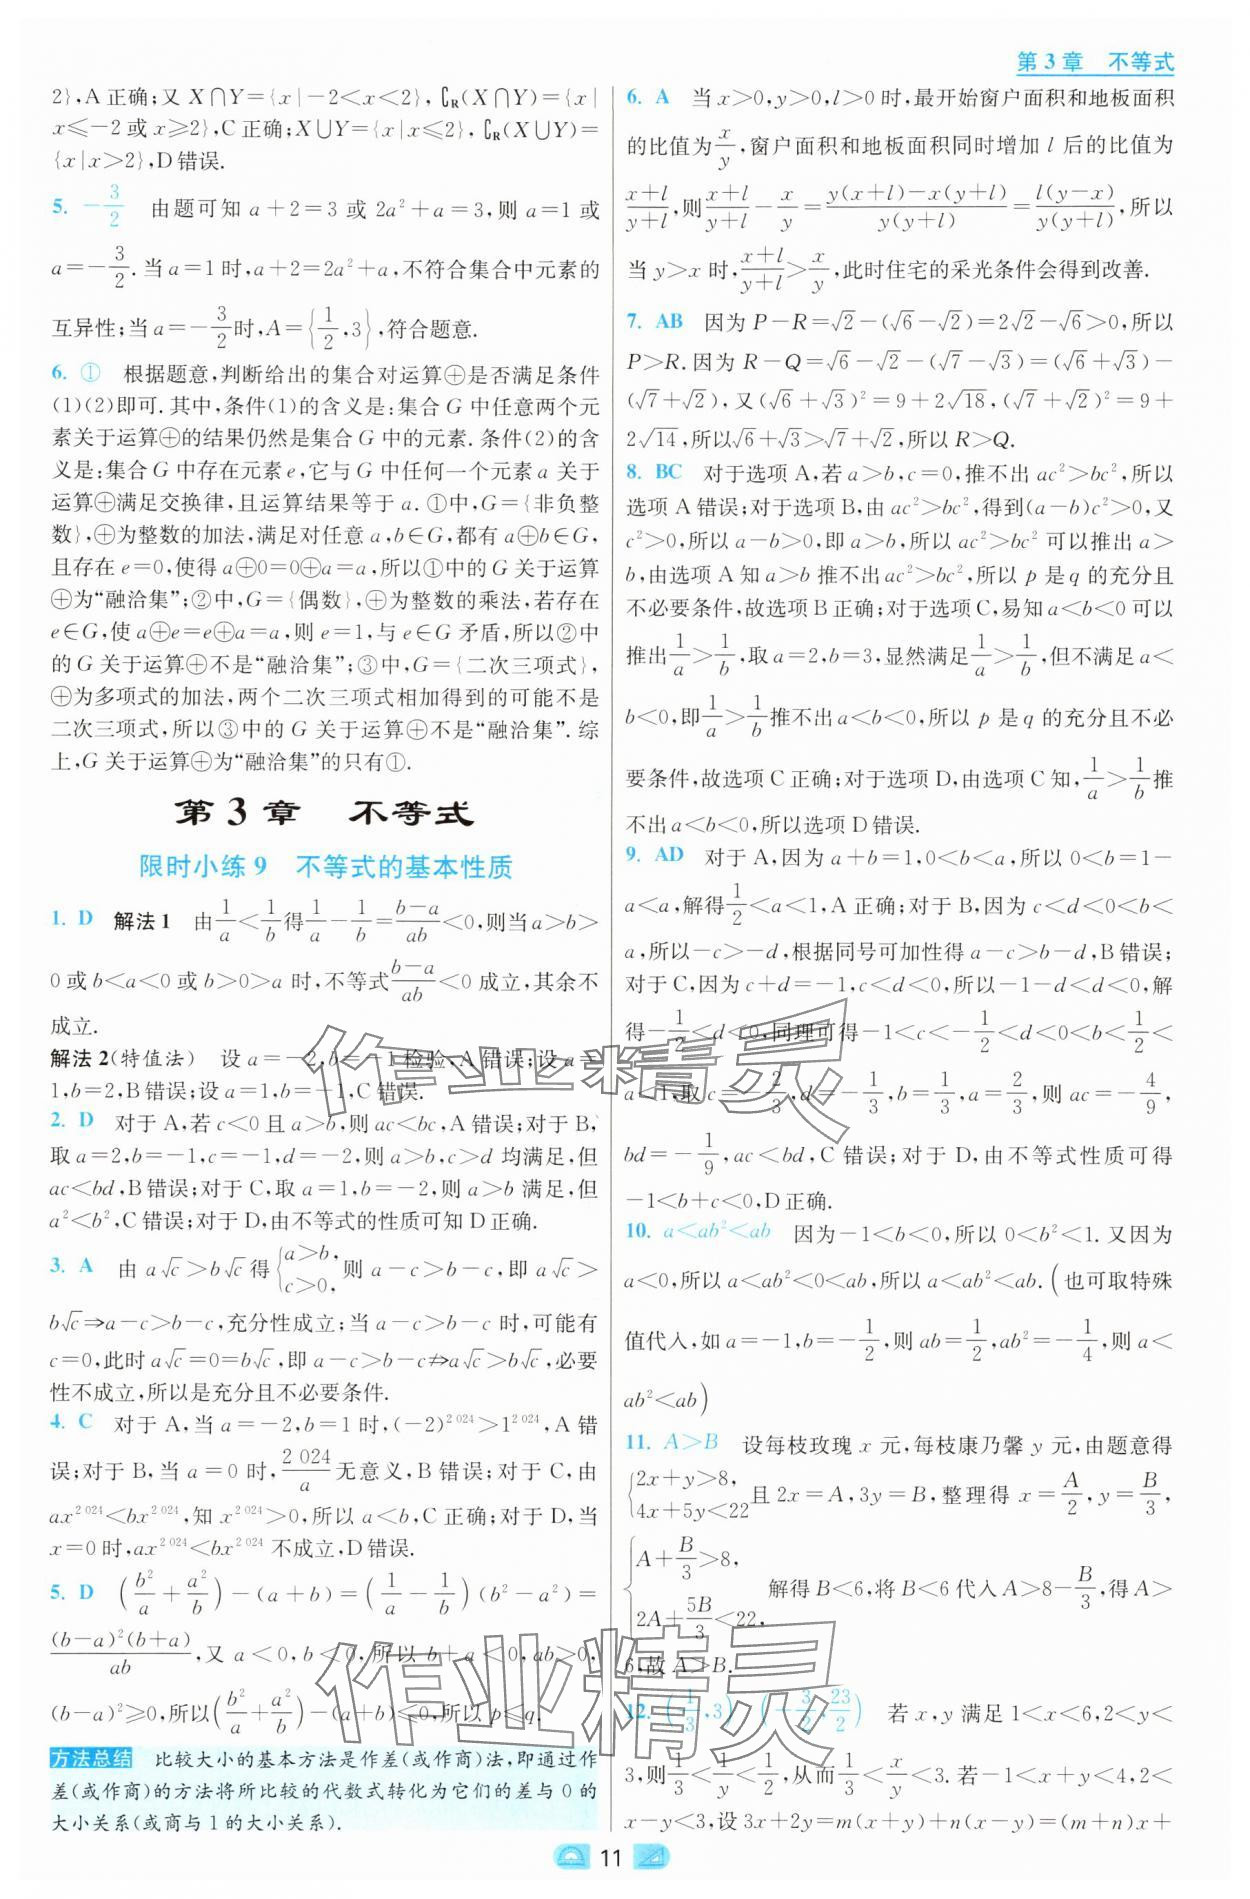 第3章 不等式
2},A正确;又 X∩Y={x|-2<x<2},∁R(X∩Y)={x|
x≤-2或x≥2},C正确;X∪Y={x|x≤2},∁R(X∪Y)=
{x|x>2},D错误.
5. -3/2 由题可知 a+2=3 或 2a²+a=3,则 a=1 或
a=-3/2.当 a=1 时,a+2=2a²+a,不符合集合中元素的
互异性;当 a=-3/2时,A={1/2,3},符合题意.
6. ① 根据题意,判断给出的集合对运算⊕是否满足条件
(1)(2)即可.其中,条件(1)的含义是:集合 G 中任意两个元
素关于运算⊕的结果仍然是集合 G 中的元素.条件(2)的含
义是:集合 G 中存在元素 e,它与 G 中任何一个元素 a 关于
运算⊕满足交换律,且运算结果等于 a.①中,G={非负整
数},⊕为整数的加法,满足对任意 a,b∈G,都有 a⊕b∈G,
且存在 e=0,使得 a⊕0=0⊕a=a,所以①中的 G 关于运算
⊕为“融洽集”;②中,G={偶数},⊕为整数的乘法,若存在
e∈G,使 a⊕e=e⊕a=a,则 e=1,与 e∈G 矛盾,所以②中
的 G 关于运算⊕不是“融洽集”;③中,G={二次三项式},
⊕为多项式的加法,两个二次三项式相加得到的可能不是
二次三项式,所以③中的 G 关于运算⊕不是“融洽集”.综
上,G 关于运算⊕为“融洽集”的只有①.
第3章 不等式
限时小练9 不等式的基本性质
1. D 解法1 由1/a<1/b得1/a-1/b=(b-a)/ab<0,则当a>b>
0或b<a<0或b>0>a 时,不等式(b-a)/ab<0成立,其余不
成立.
解法2(特值法) 设 a=-2,b=-1检验,A错误;设 a=
1,b=2,B错误;设a=1,b=-1,C错误.
2. D 对于A,若 c<0 且 a>b,则 ac<bc,A错误;对于B,
取 a=2,b=-1,c=-1,d=-2,则 a>b,c>d 均满足,但
ac<bd,B错误;对于C,取 a=1,b=-2,则 a>b 满足,但
a²<b²,C错误;对于D,由不等式的性质可知D正确.
3. A 由 a√c>b√c 得{a>b, c>0, 则 a-c>b-c,即 a√c>
b√c⇒a-c>b-c,充分性成立;当 a-c>b-c 时,可能有
c=0,此时 a√c=0=b√c,即 a-c>b-c⇏a√c>b√c,必要
性不成立,所以是充分且不必要条件.
4. C 对于 A,当 a=-2,b=1 时,(-2)²⁰²⁴>1²⁰²⁴,A错
误;对于B,当 a=0 时,2 024/a无意义,B错误;对于C,由
ax²⁰²⁴<bx²⁰²⁴,知 x²⁰²⁴>0,所以 a<b,C正确;对于D,当
x=0时,ax²⁰²⁴<bx²⁰²⁴不成立,D错误.
5. D (b²/a+a²/b)-(a+b)=(1/a-1/b)(b²-a²)=
(b-a)²(b+a)/ab,又 a<0,b<0,所以 b+a<0,ab>0,
(b-a)²≥0,所以(b²/a+a²/b)-(a+b)≤0,所以 p≤q.
方法总结 比较大小的基本方法是作差(或作商)法,即通过作
差(或作商)的方法将所比较的代数式转化为它们的差与 0 的
大小关系(或商与1的大小关系).
6. A 当 x>0,y>0,l>0时,最开始窗户面积和地板面积
的比值为x/y,窗户面积和地板面积同时增加 l 后的比值为
(x+l)/(y+l),则(x+l)/(y+l)-x/y=(y(x+l)-x(y+l))/(y(y+l))=l(y-x)/(y(y+l)),所以
当 y>x 时,(x+l)/(y+l)>x/y,此时住宅的采光条件会得到改善.
7. AB 因为 P-R=√2-(√6-√2)=2√2-√6>0,所以
P>R.因为 R-Q=√6-√2-(√7-√3)=(√6+√3)-
(√7+√2),又(√6+√3)²=9+2√18,(√7+√2)²=9+
2√14,所以√6+√3>√7+√2,所以 R>Q.
8. BC 对于选项A,若 a>b,c=0,推不出 ac²>bc²,所以
选项A错误;对于选项B,由 ac²>bc²,得到(a-b)c²>0,又
c²>0,所以 a-b>0,即 a>b,所以 ac²>bc² 可以推出 a>
b,由选项A知 a>b 推不出 ac²>bc²,所以 p 是 q 的充分且
不必要条件,故选项B正确;对于选项C,易知 a<b<0 可以
推出1/a>1/b,取 a=2,b=3,显然满足1/a>1/b,但不满足 a<
b<0,即1/a>1/b推不出 a<b<0,所以 p 是 q 的充分且不必
要条件,故选项C正确;对于选项D,由选项C知,1/a>1/b推
不出 a<b<0,所以选项D错误.
9. AD 对于A,因为 a+b=1,0<b<a,所以 0<b=1-
a<a,解得1/2<a<1,A正确;对于B,因为 c<d<0<b<
a,所以-c>-d,根据同号可加性得 a-c>b-d,B错误;
对于C,因为 c+d=-1,c<d<0,所以-1-d<d<0,解
得-1/2<d<0,同理可得-1<c<-1/2<d<0<b<1/2<
a<1,取 c=-2/3,d=-1/3,b=1/3,a=2/3,则 ac=-4/9,
bd=-1/9,ac<bd,C错误;对于D,由不等式性质可得
-1<b+c<0,D正确.
10. a<ab²<ab 因为-1<b<0,所以 0<b²<1.又因为
a<0,所以 a<ab²<0<ab,所以 a<ab²<ab.(也可取特殊
值代入,如 a=-1,b=-1/2,则 ab=1/2,ab²=-1/4,则 a<
ab²<ab)
11. A>B 设每枝玫瑰 x 元,每枝康乃馨 y 元,由题意得
{2x+y>8, 4x+5y<22 且 2x=A,3y=B,整理得 x=A/2,y=B/3,
{A+B/3>8, 2A+5B/3<22, 解得 B<6,将 B<6 代入 A>8-B/3,得 A>
6,故 A>B.
12. (1/3,3) (-3/2,23/2) 若 x,y 满足 1<x<6,2<y<
3,则1/3<1/y<1/2,从而1/3<x/y<3.若-1<x+y<4,2<
x-y<3,设 3x+2y=m(x+y)+n(x-y)=(m+n)x+
11
作业精灵
作业精灵